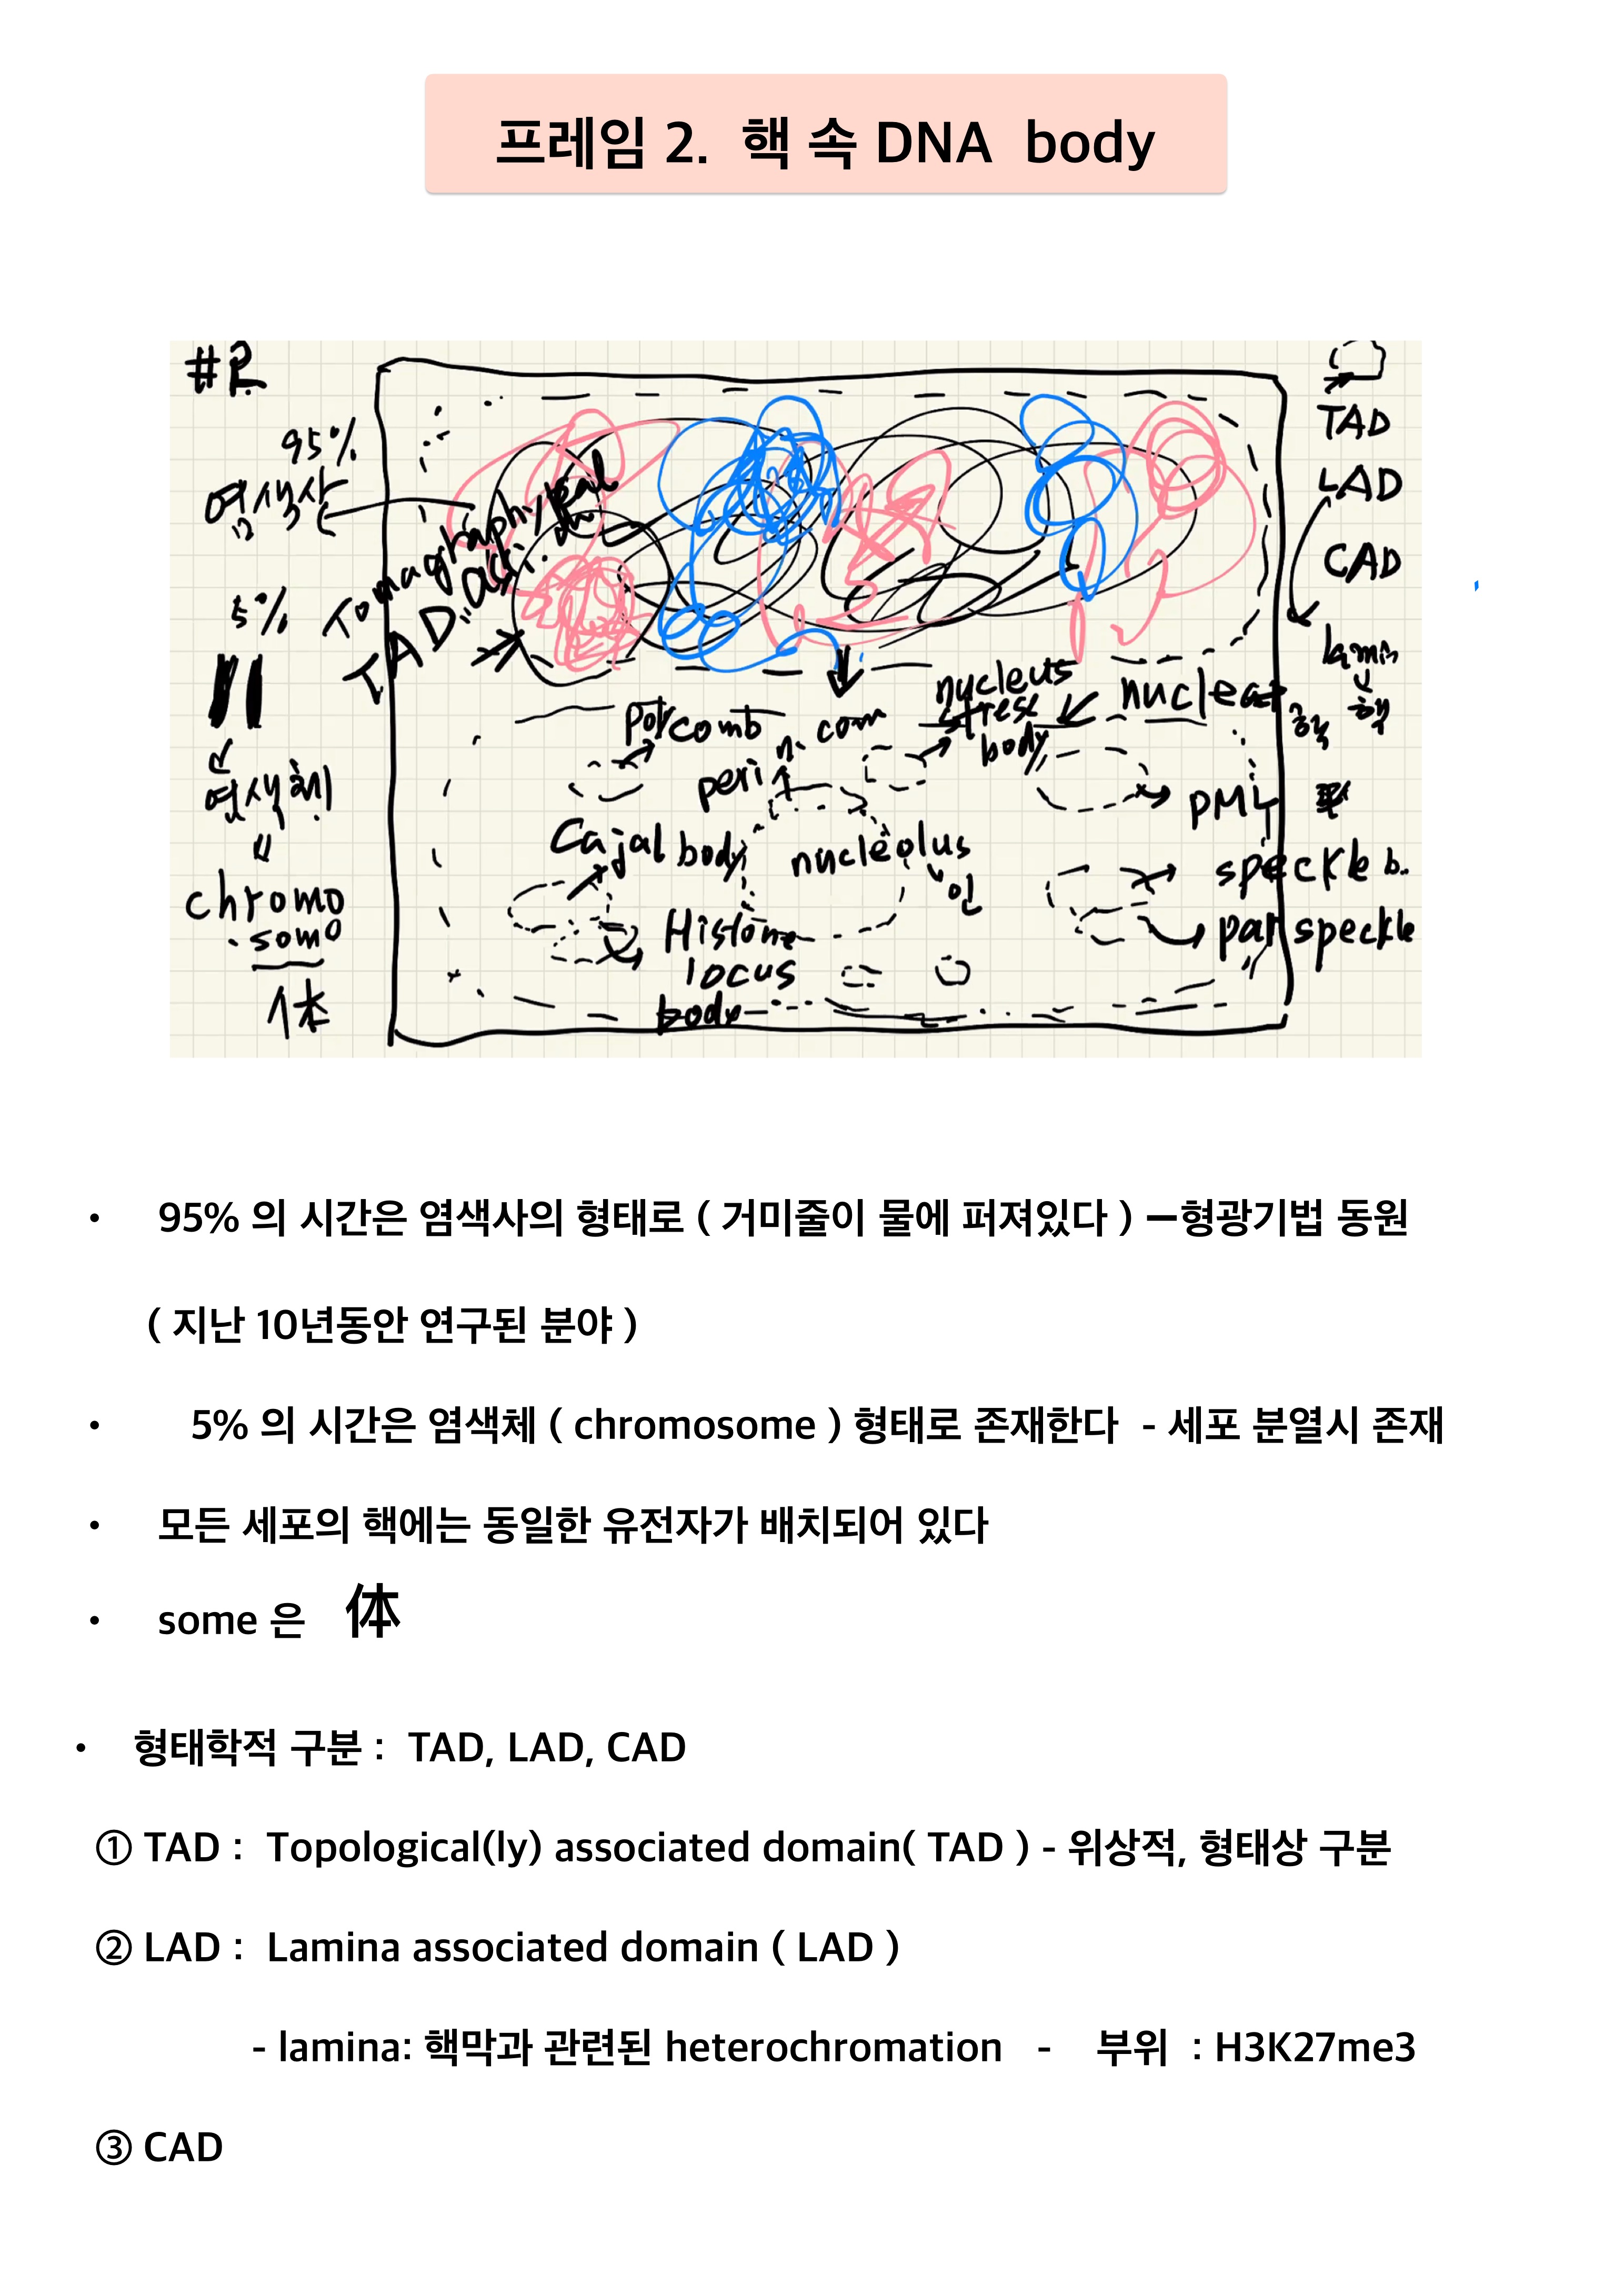 프레임 2. 핵 속 DNA body
#2
95%
염색사
5%
염색체
chromo
some
体
TAD
LAD
CAD
lamin
핵
TAD
polycomb
n. com
peri
nucleus
stress
body
nuclear
PML
Cajal body
nucleolus
인
speckle b.
Histone
locus
body
par speckle
• 95% 의 시간은 염색사의 형태로 ( 거미줄이 물에 퍼져있다 ) —형광기법 동원
( 지난 10년동안 연구된 분야 )
• 5% 의 시간은 염색체 ( chromosome ) 형태로 존재한다 - 세포 분열시 존재
• 모든 세포의 핵에는 동일한 유전자가 배치되어 있다
• some 은 体
• 형태학적 구분 : TAD, LAD, CAD
① TAD : Topological(ly) associated domain( TAD ) - 위상적, 형태상 구분
② LAD : Lamina associated domain ( LAD )
- lamina: 핵막과 관련된 heterochromation - 부위 : H3K27me3
③ CAD